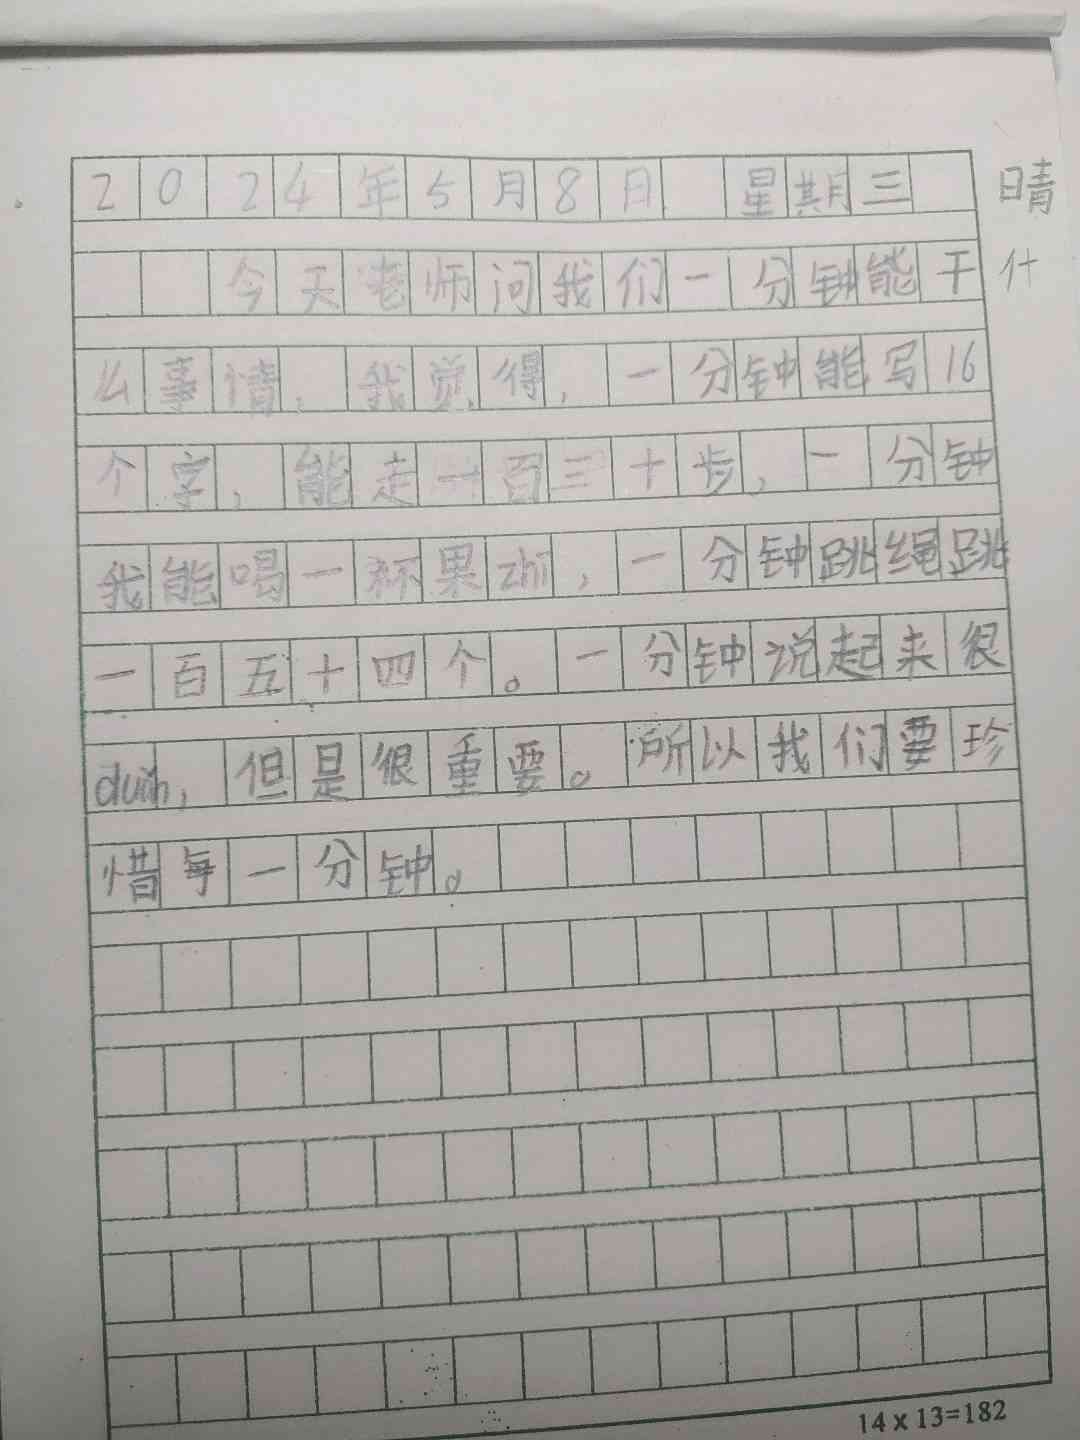 2024年5月8日 星期三 晴
今天老师问我们一分钟能干什
么事请，我觉得，一分钟能写16
个字，能走一百三十步，一分钟
我能喝一杯果zhī，一分钟跳绳跳
一百五十四个。一分钟说起来很
duǎn，但是很重要。所以我们要珍
惜每一分钟。
14 x 13=182